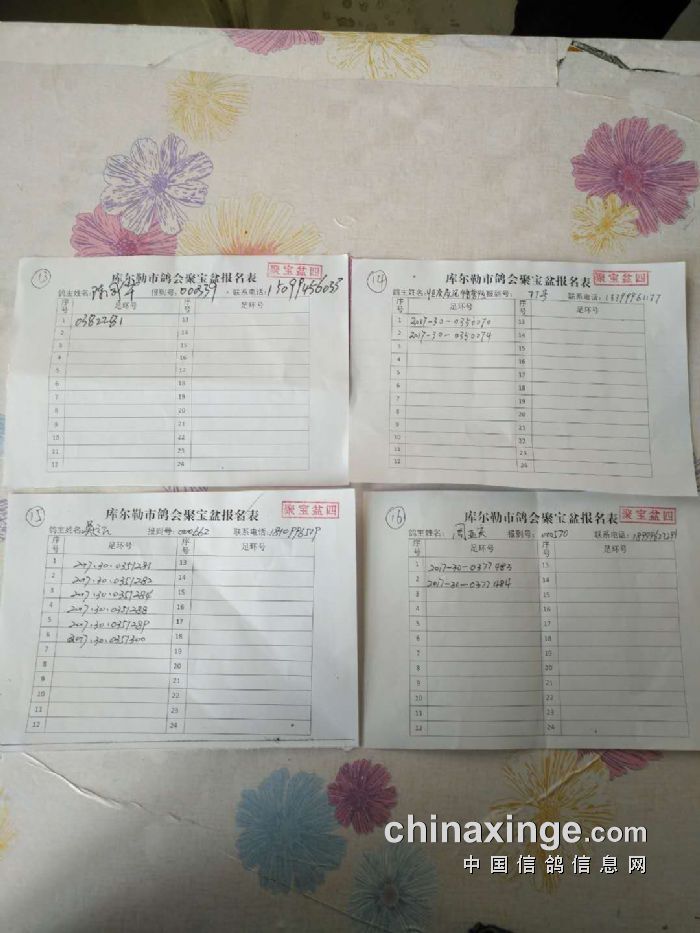 13
库尔勒市鸽会聚宝盆报名表
聚宝盆四
鸽主姓名: 报到号: 00339 联系电话: 15099456033
序号 足环号 序号 足环号
1 0382281 13
2 14
3 15
4 16
5 17
6 18
7 19
8 20
9 21
10 22
11 23
12 24
14
库尔勒市鸽会聚宝盆报名表
聚宝盆四
鸽主姓名: 报到号: 联系电话:
序号 足环号 序号 足环号
1 2017-30-0350070 13
2 2017-30-0350074 14
3 15
4 16
5 17
6 18
7 19
8 20
9 21
10 22
11 23
12 24
15
库尔勒市鸽会聚宝盆报名表
聚宝盆四
鸽主姓名: 报到号: 000662 联系电话:
序号 足环号 序号 足环号
1 2017.30.0351281 13
2 2017.30.0351282 14
3 2017.30.0351284 15
4 2017.30.0351288 16
5 2017.30.0351289 17
6 2017.30.0351300 18
7 19
8 20
9 21
10 22
11 23
12 24
16
库尔勒市鸽会聚宝盆报名表
聚宝盆四
鸽主姓名: 报到号: 000570 联系电话:
序号 足环号 序号 足环号
1 2017-30-0377483 13
2 2017-30-0377484 14
3 15
4 16
5 17
6 18
7 19
8 20
9 21
10 22
11 23
12 24
chinaxinge.com
中国信鸽信息网